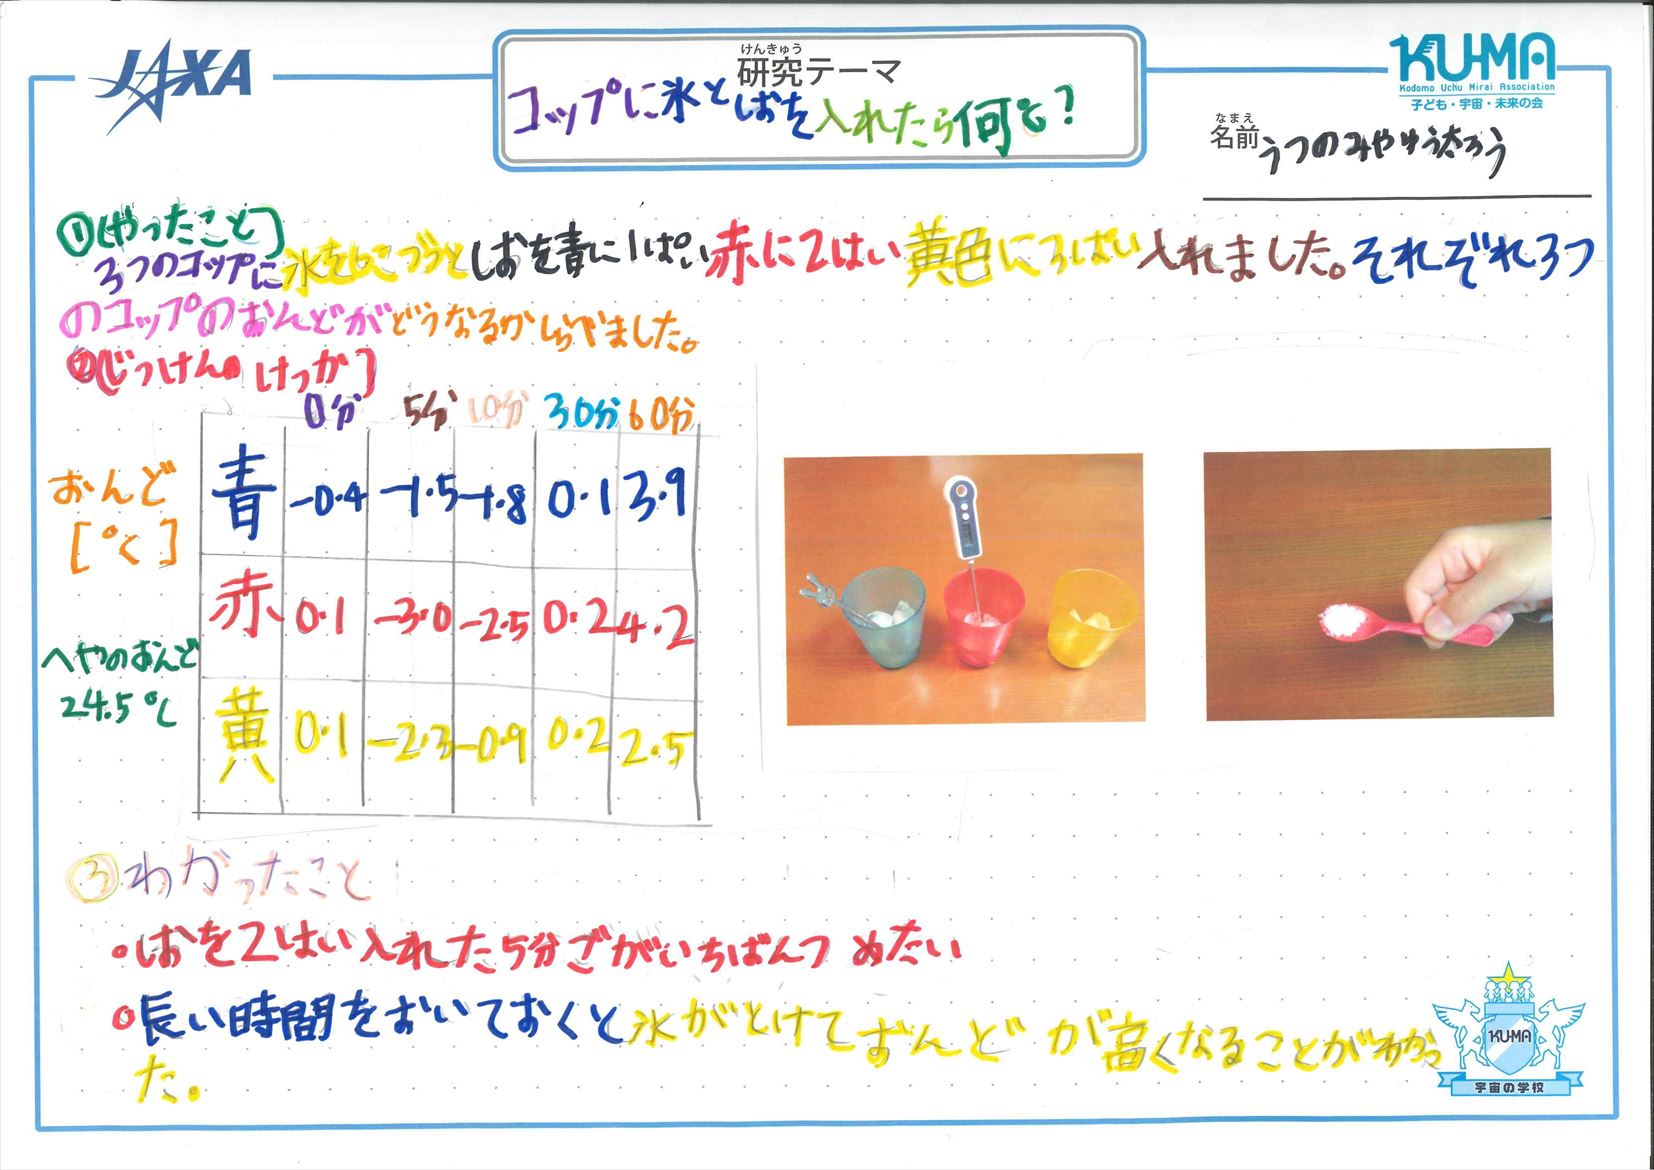 JAXA
けんきゅう
研究テーマ
コップに氷としおを入れたら何ど?
KU-MA
Kodomo Uchu Mirai Association
子ども・宇宙・未来の会
なまえ
名前 うつのみやゆうたろう
①[やったこと]
3つのコップに氷を6こづつとしおを青に1ぱい赤に2はい黄色に3ばい入れました。それぞれ3つ
のコップのおんどがどうなるかしらべました。
②[じっけんのけっか]
0分 5分 10分 30分 60分
おんど
[℃]
青 -0.4 -1.5 -1.8 0.1 3.9
赤 0.1 -3.0 -2.5 0.2 4.2
へやのおんど
24.5℃
黄 0.1 -2.3 -0.9 0.2 2.5
③わかったこと
・しおを2はい入れた5分ごがいちばんつめたい
・長い時間をおいておくと氷がとけておんどが高くなることがわかっ
た。
KU-MA
宇宙の学校